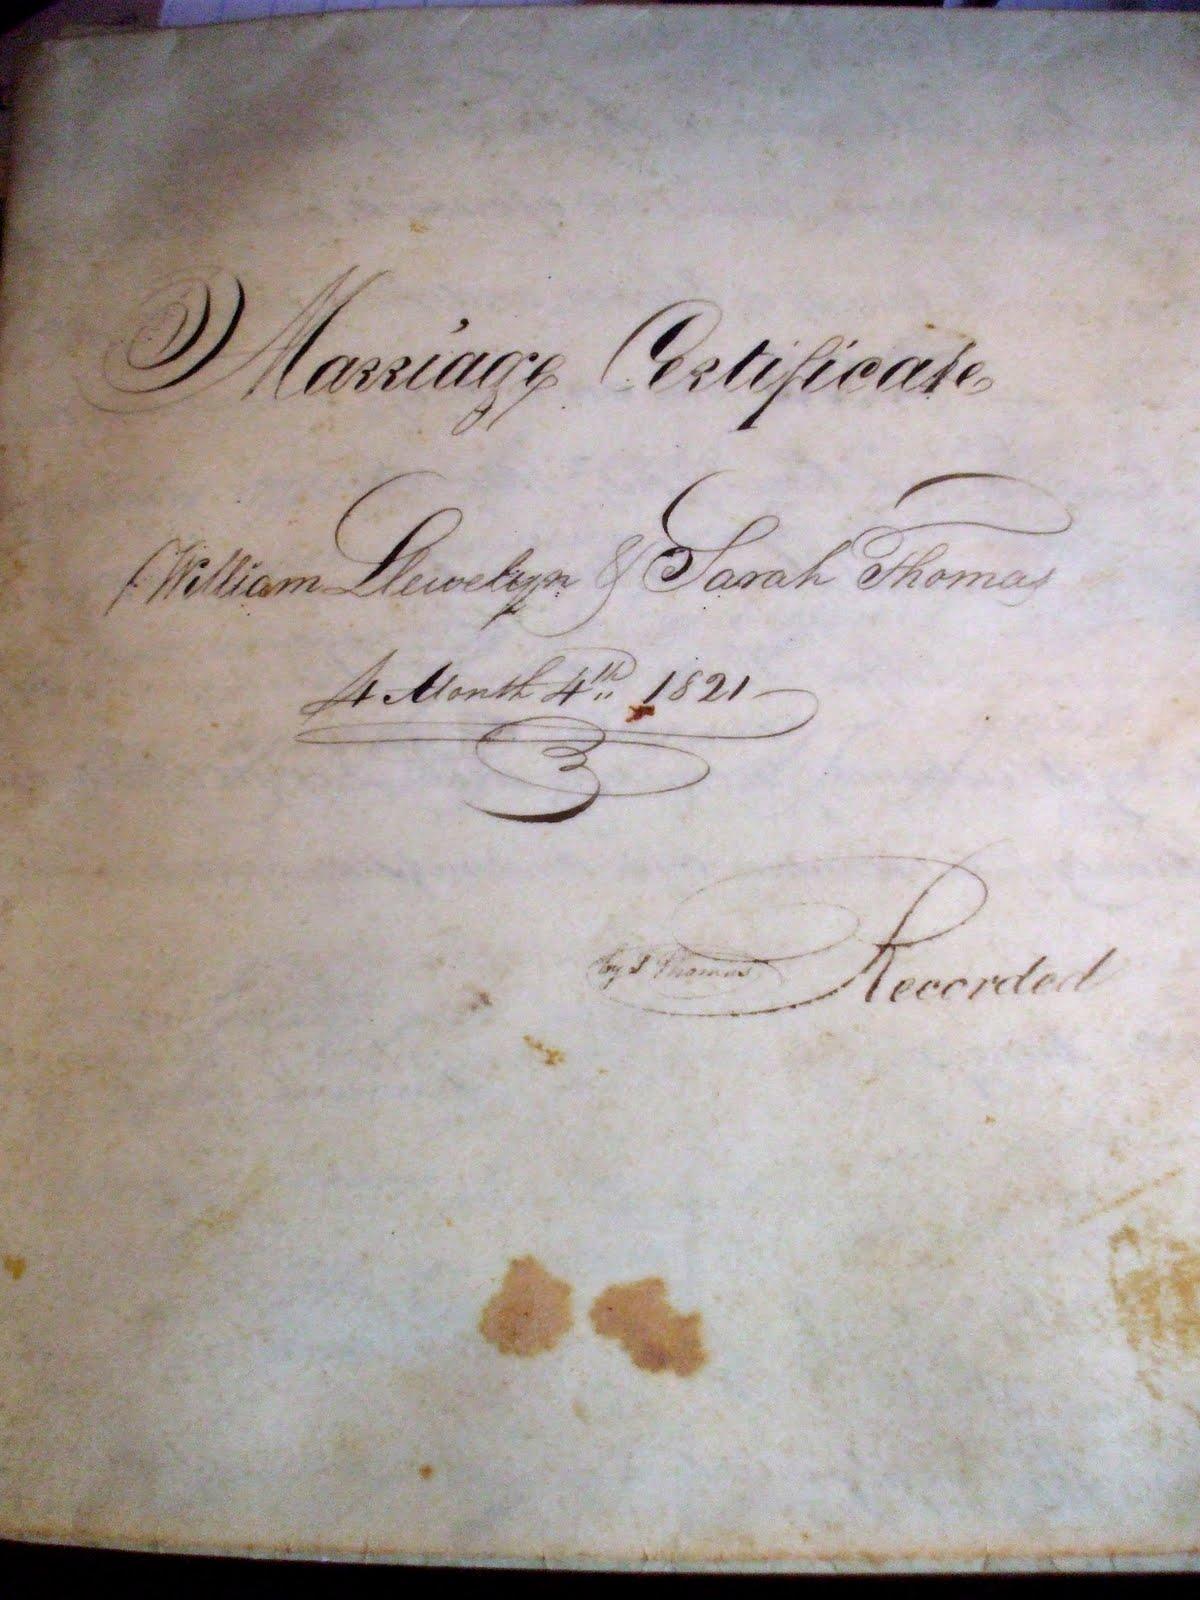 Marriage Certificate
William Llewelyn & Sarah Thomas
4 Month 4th 1821
Recorded
by S Thomas